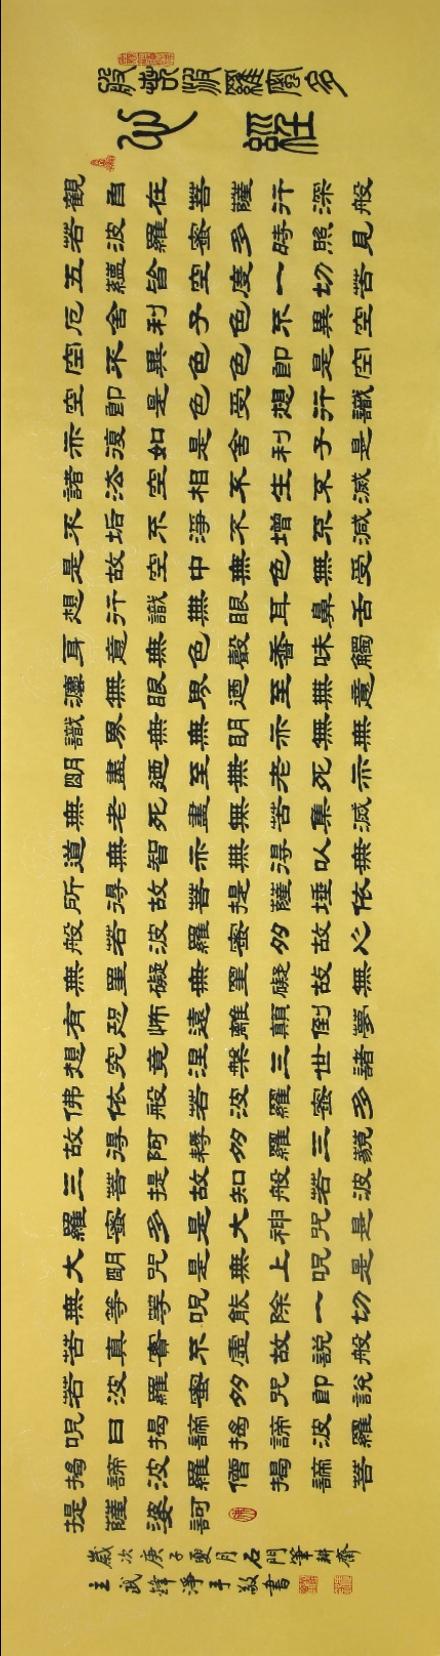 般若波羅蜜多
心經
觀自在菩薩行深般
若波羅蜜多時照見
五蘊皆空度一切苦
厄舍利子色不異空
空不異色色即是空
空即是色受想行識
亦復如是舍利子是
諸法空相不生不滅
不垢不淨不增不減
是故空中無色無受
想行識無眼耳鼻舌
身意無色聲香味觸
法無眼界廼至無意
識界無無明亦無無
明盡廼至無老死亦
無老死盡無苦集滅
道無智亦無得以無
所得故菩提薩埵依
般若波羅蜜多故心
無罣礙無罣礙故無
有恐怖遠離顛倒夢
想究竟涅槃三世諸
佛依般若波羅蜜多
故得阿耨多羅三藐
三菩提故知般若波
羅蜜多是大神呪是
大明呪是無上呪是
無等等呪能除一切
苦真實不虛故說般
若波羅蜜多呪即說
呪曰揭諦揭諦波羅
揭諦波羅僧揭諦菩
提薩婆訶
歲次庚子夏月石門筆耕齋
主武鋒淨手敬書